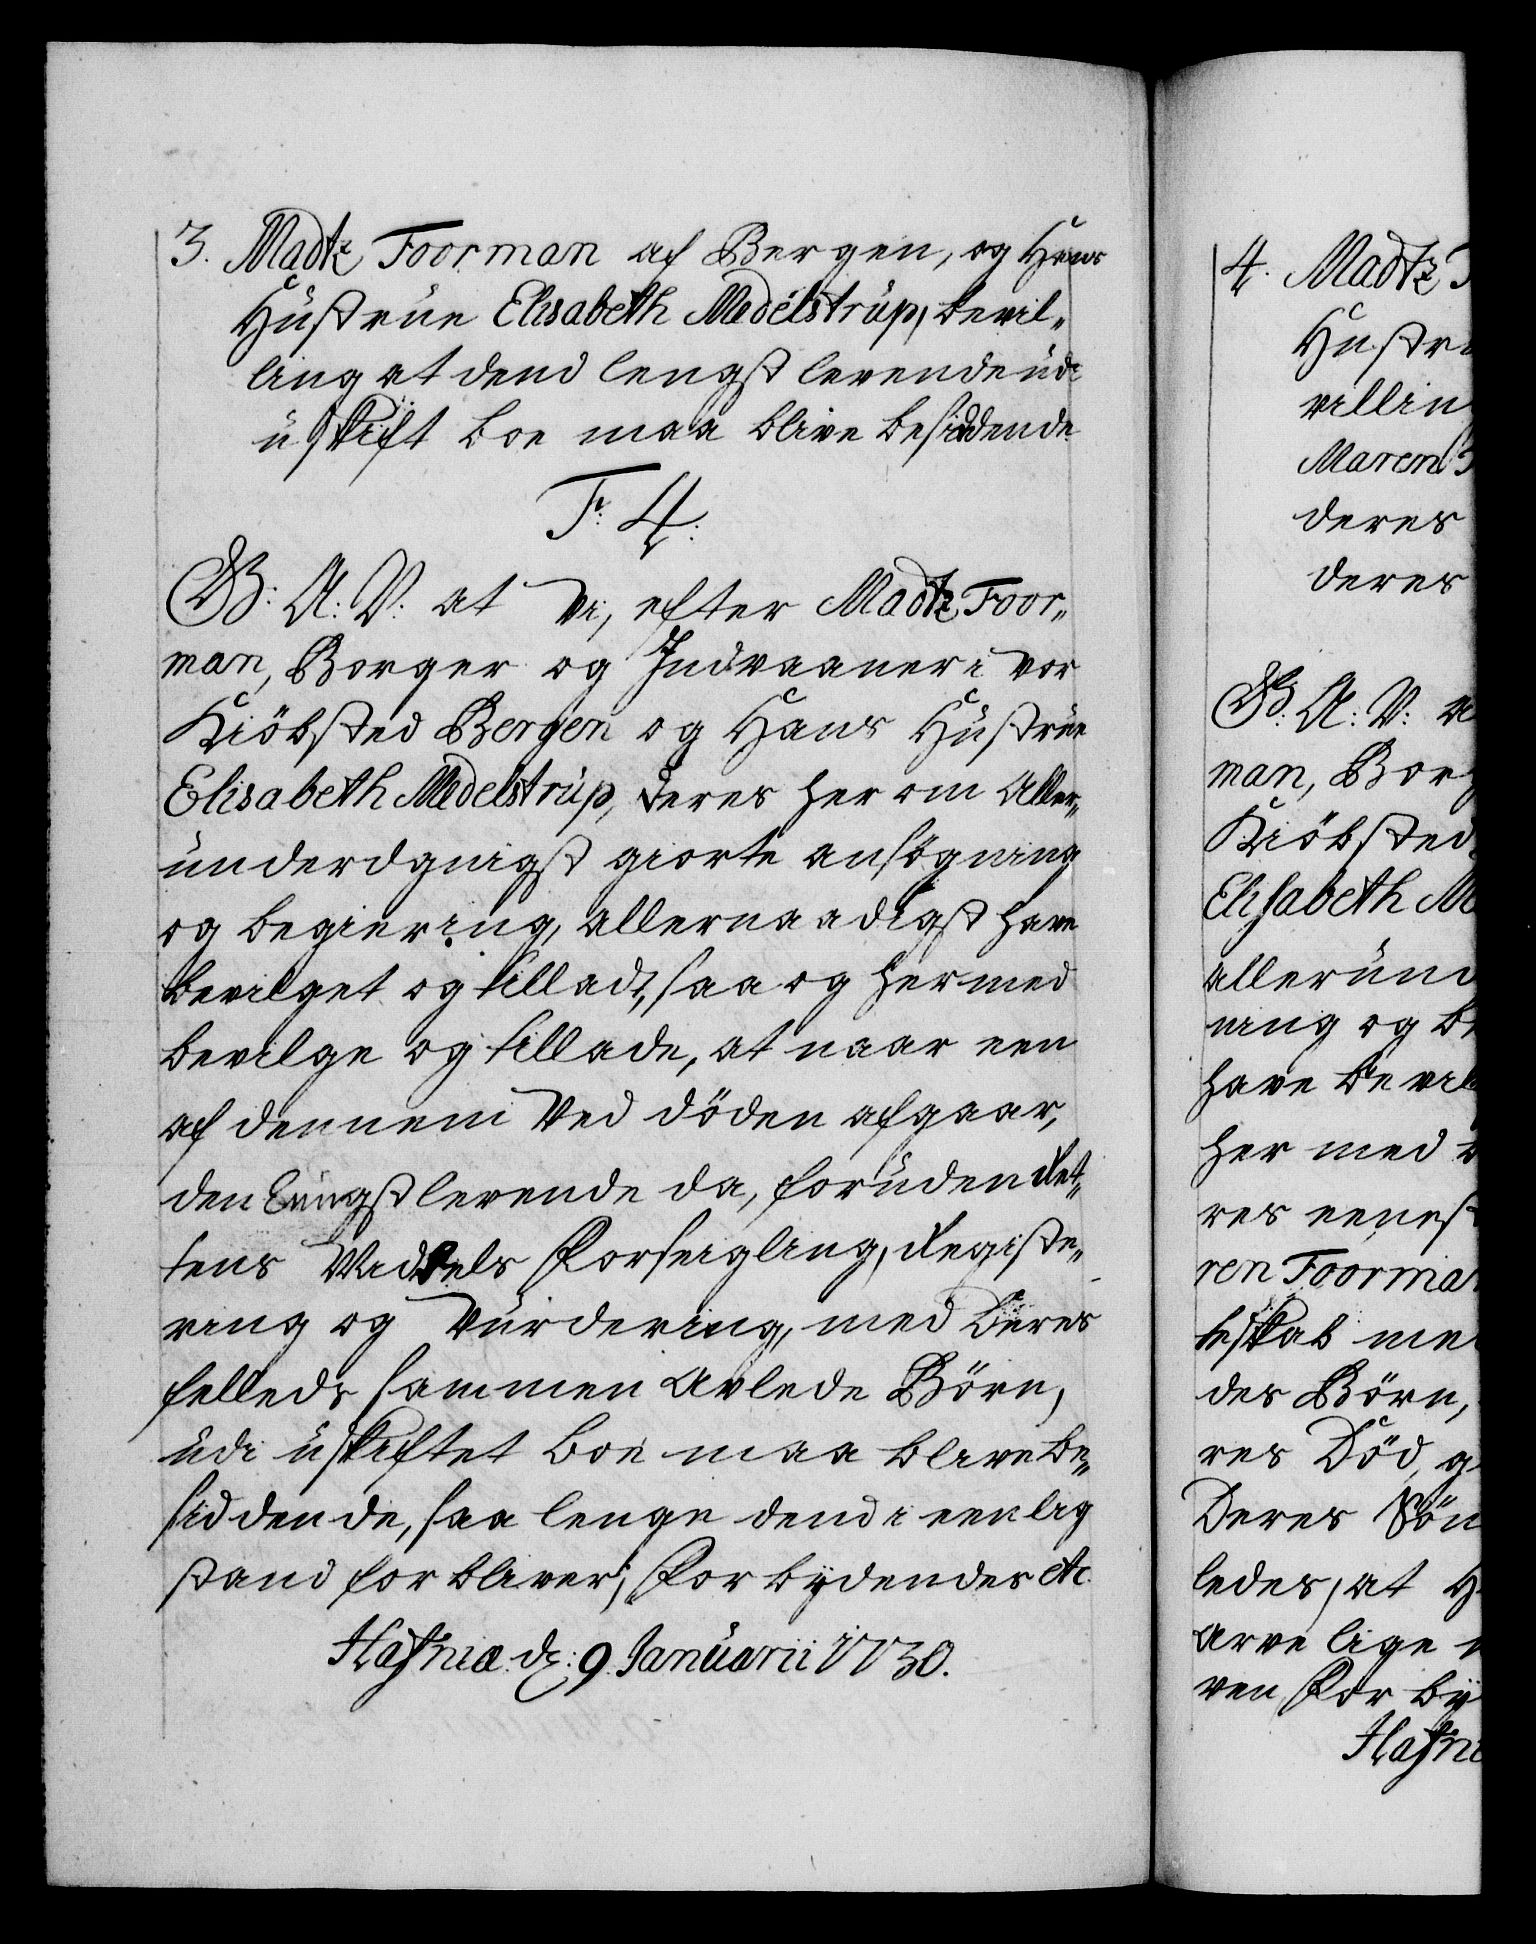 3. Madtz Foorman af Bergen, og Hans
Hüstrüe Elisabeth Medelstrüp, bevil„
ling at dend lengst levende üdi
üskift boe maa blive besiddende
Fr: 4:
G: A: V: at Vi, efter Madtz Foor„
man, Borger og Indvaaner i vor
Kiöbsted Bergen og Hans Hüstrüe
Elisabeth Medelstrüp, deres her om Aller„
ünderdanigst giorte ansögning
og begiering, allernaadigst have
bevilget og tilladt, saa og hermed
bevilge og tillade, at naar een
af dennem Ved döden afgaar,
den lengstlevende da, forüden Ret„
tens Middels Forseigling, Registe„
ring og Vürdering, med Deres
felleds sammen Avlede Börn,
üdi üskiftet boe maa blive be„
siddende, saa lenge dend i eenlig
stand forbliver; Forbydendes etc.
Hafniæ. d: 9 Januarii 1730.
4. Madtz
Hustru
villin
Maren
deres
deres
G: A: V: a
man, Borg
Kiöbsted
Elisabeth Me
allerün
ning og be
have bevil
her med
res eenest
ren Foorman
teskab me
des Börn,
res Död, g
Deres Sön
ledes, at H
arve lige
ven, For by
Hafni